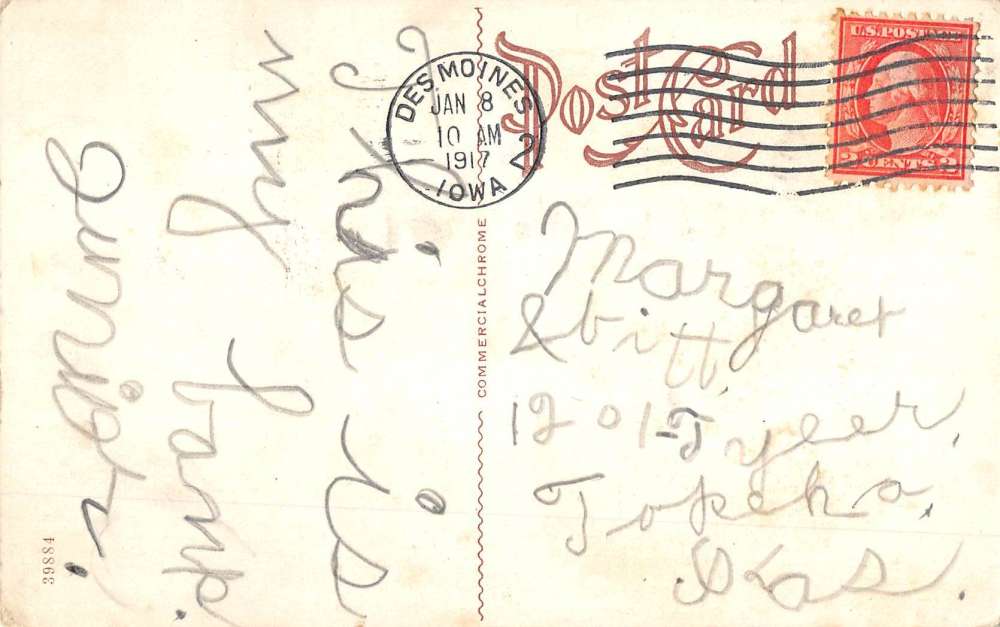 Post Card
U.S. POSTAGE
2 CENTS 2
DES MOINES 2
JAN 8
10 AM
1917
IOWA
This is
my
Junior.
COMMERCIALCHROME
39884
Margaret
1201-Tyler,
Topeka,
Kas.